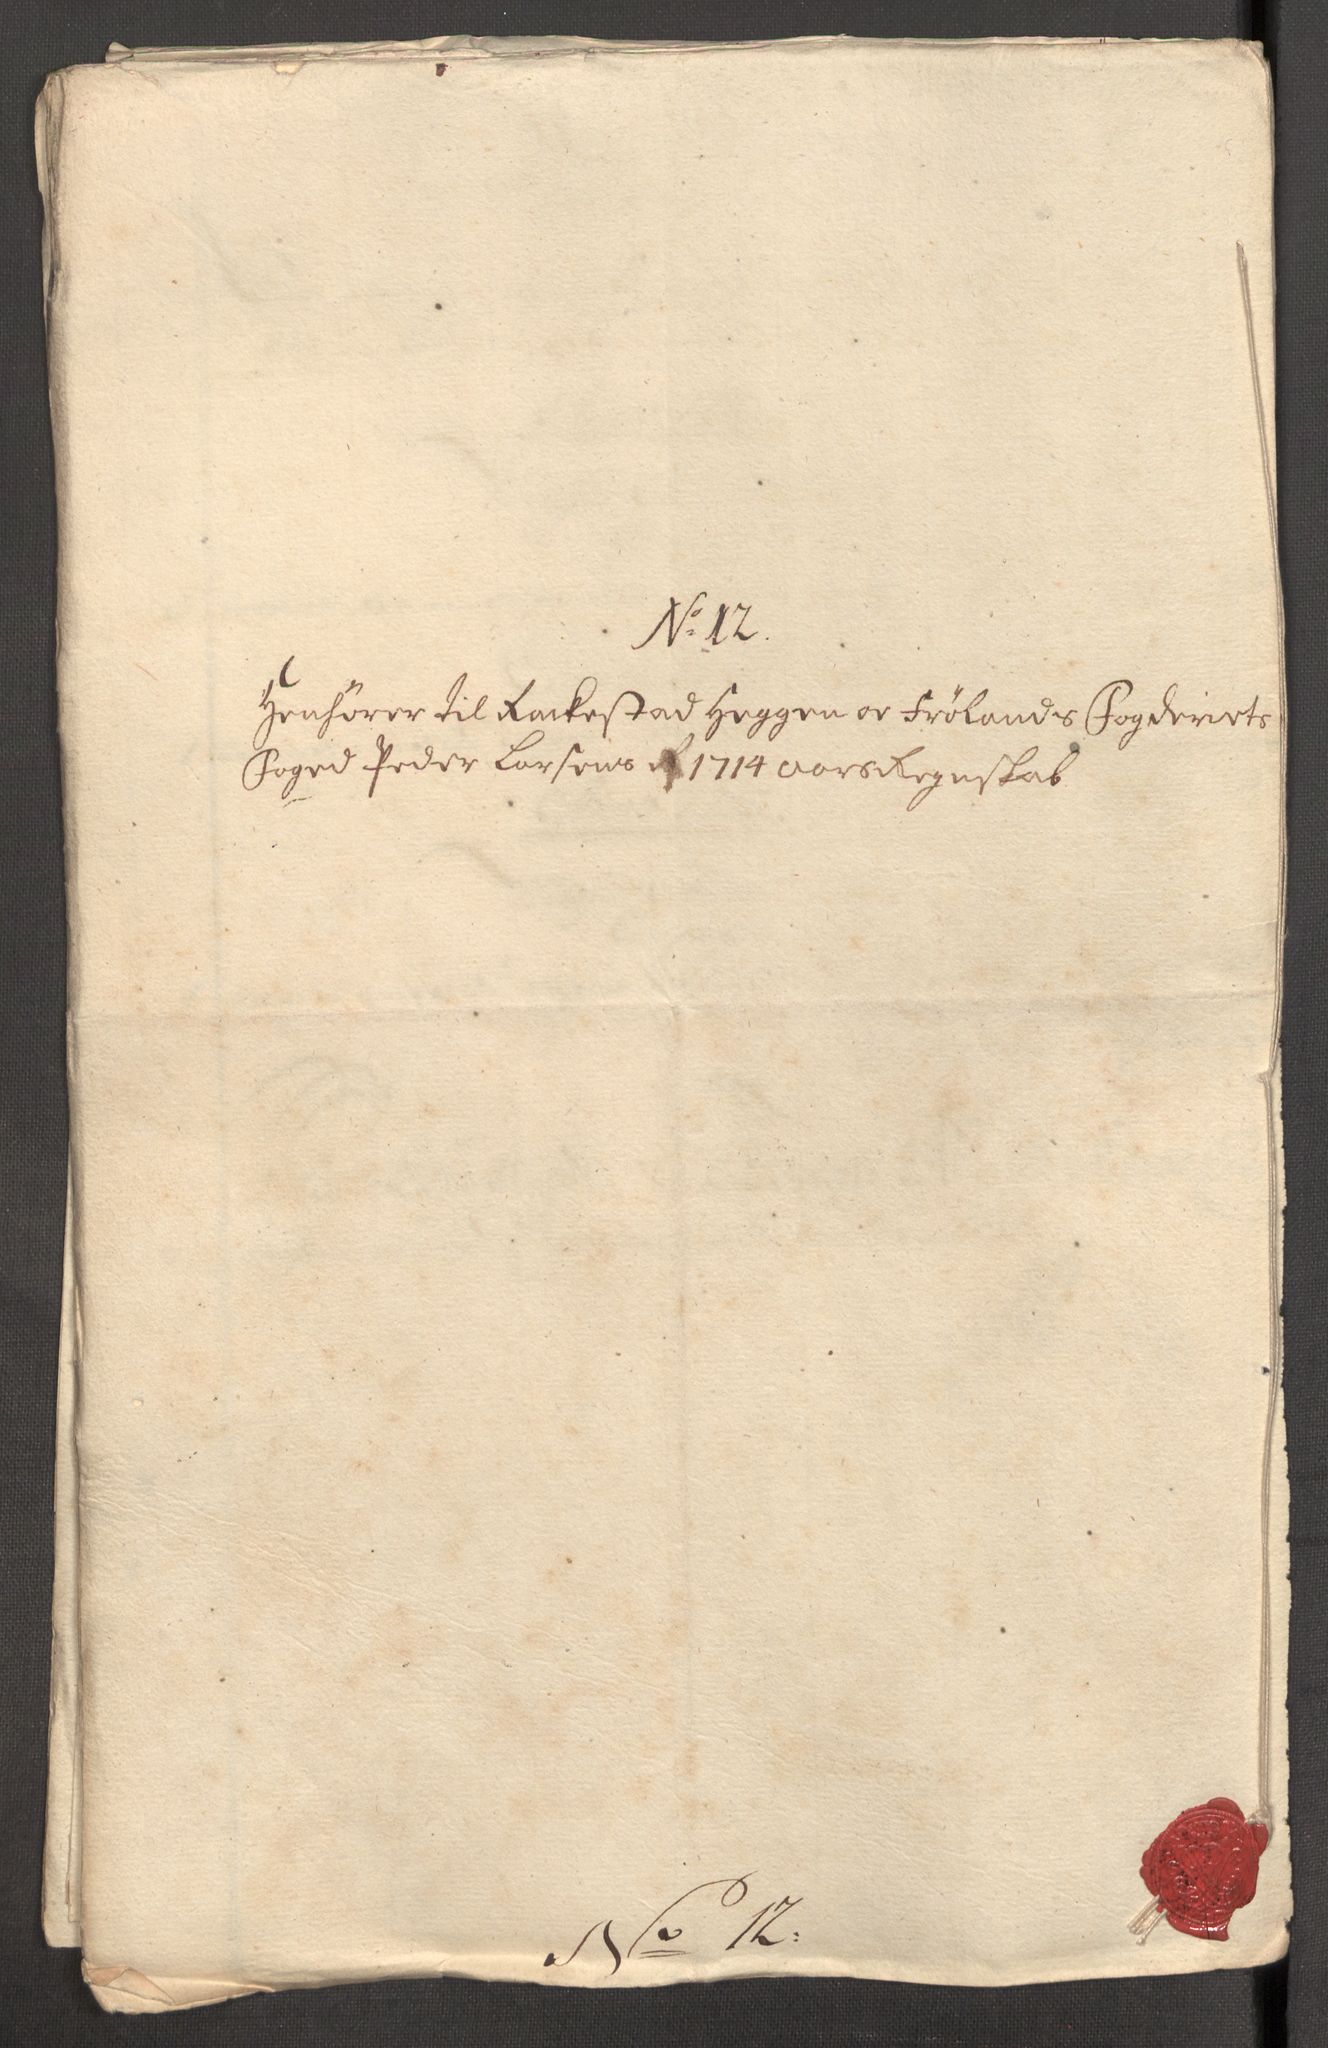 No: 12.
Henhører til Rackestad Heggen oc Frölands Fogderiets
Foged Peder Larsens 1714 aars Regnskab
No 12: